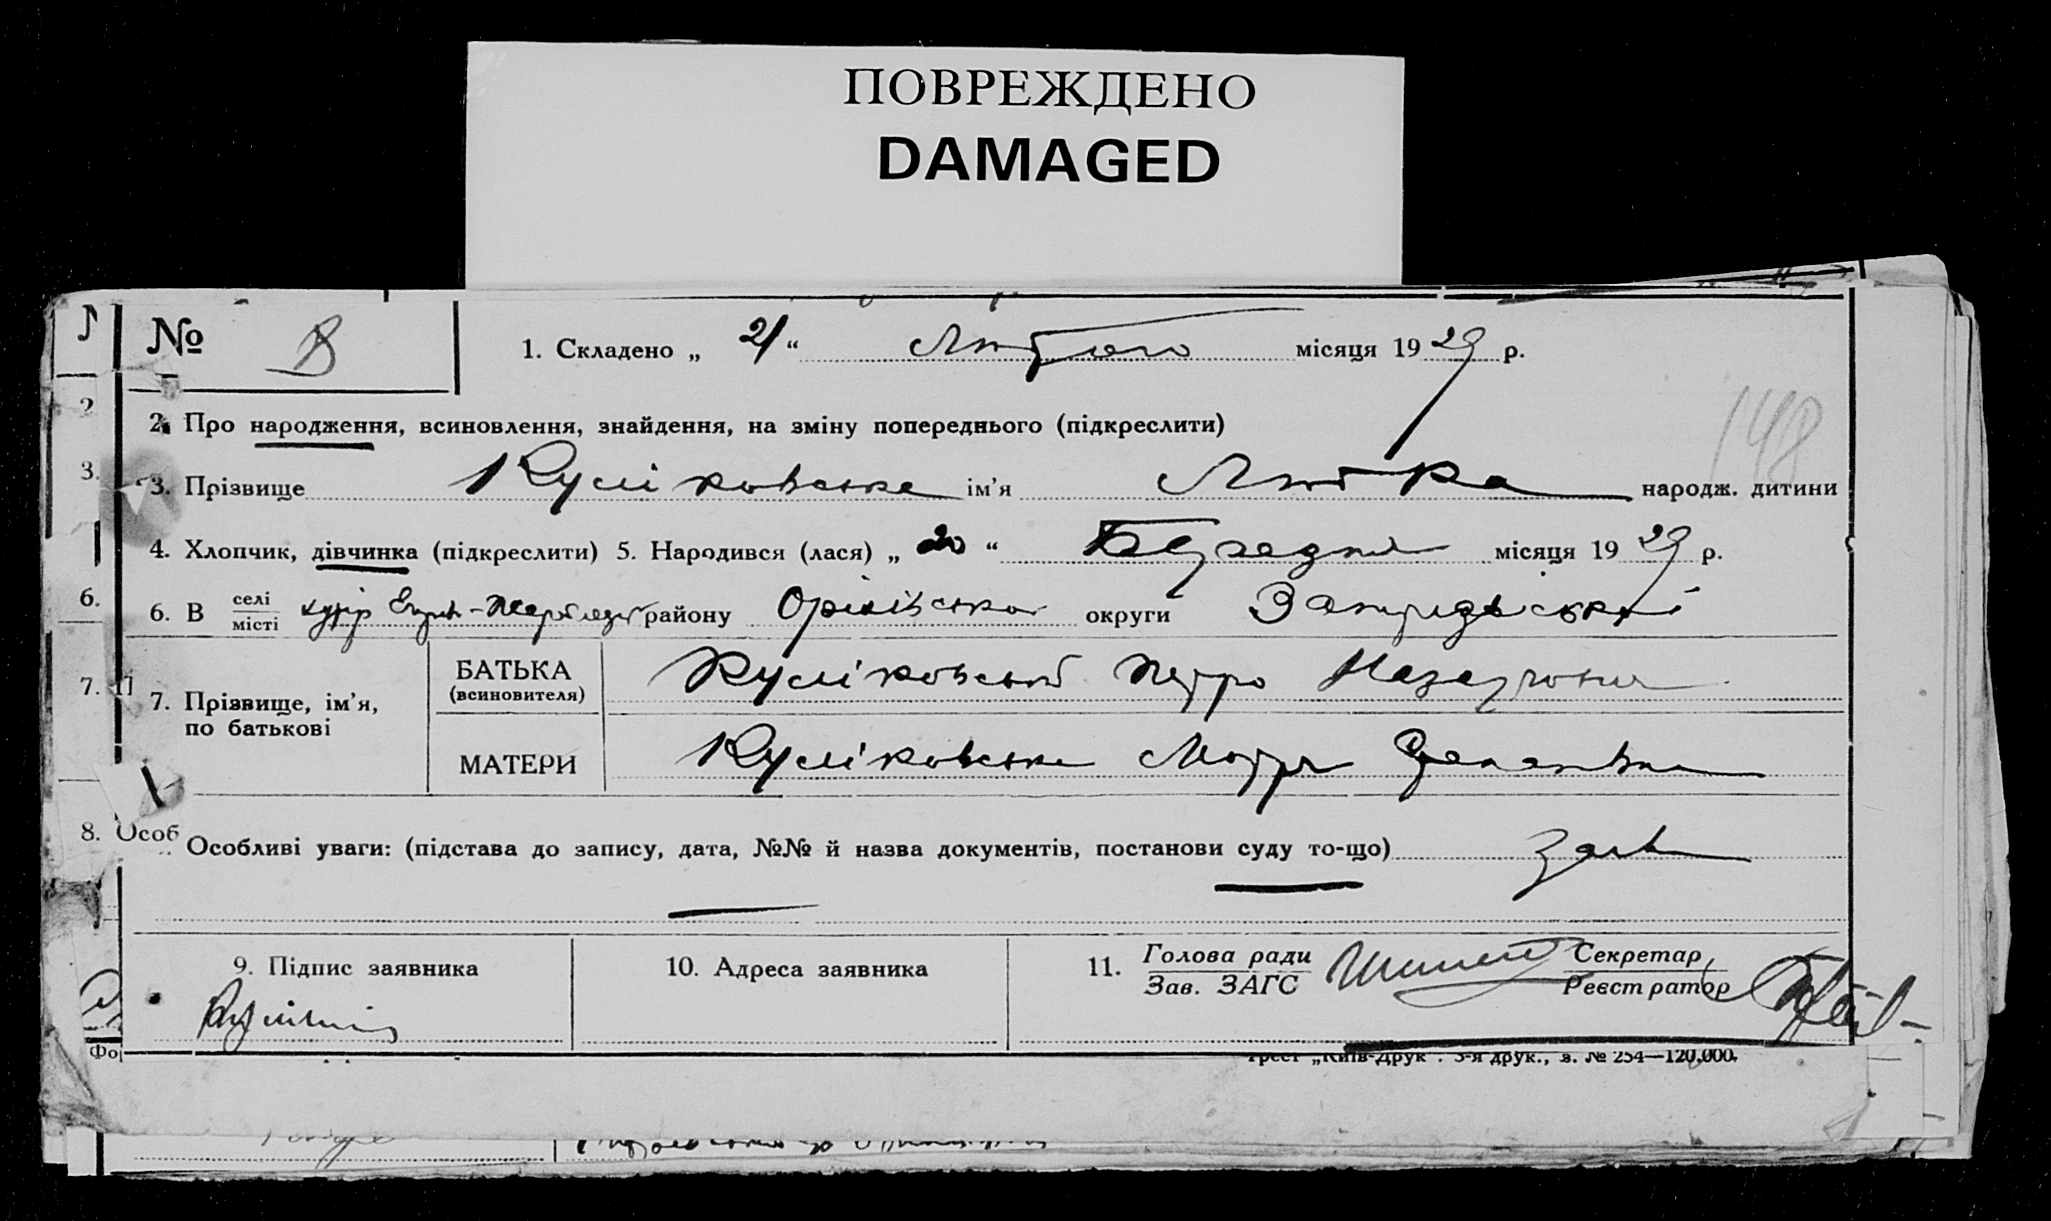 ПОВРЕЖДЕНО
DAMAGED
№ 8 1. Складено „ 21 “ Лютого місяця 1929 р.
148
2. Про народження, всиновлення, знайдення, на зміну попереднього (підкреслити)
3. Прізвище Куліковська ім’я Любка народж. дитини
4. Хлопчик, дівчинка (підкреслити) 5. Народився (лася) „ 20 “ місяця 1929 р.
6. В селі місті хутір району Оріхівсько округи Запорізької
7. Прізвище, ім’я, по батькові
БАТЬКА (всиновителя) Куліковський Петро Назарович
МАТЕРИ Куліковська Мотря
8. Особ
Особливі уваги: (підстава до запису, дата, №№ й назва документів, постанови суду то-що)
9. Підпис заявника
10. Адреса заявника
11. Голова ради Зав. ЗАГС Секретар Реєстратор
Трест „Київ-Друк“. 3-я друк., з. № 254—120,000.